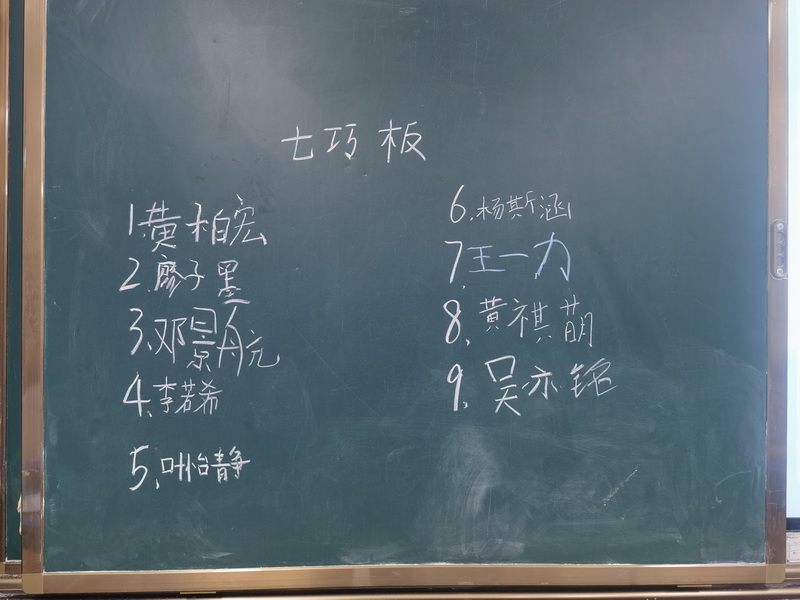 七巧板
1.黄柏宏
2.廖子墨
3.邓景航
4.李若希
5.叶怡静
6.杨斯涵
7.王一力
8.黄祺萌
9.吴亦铭